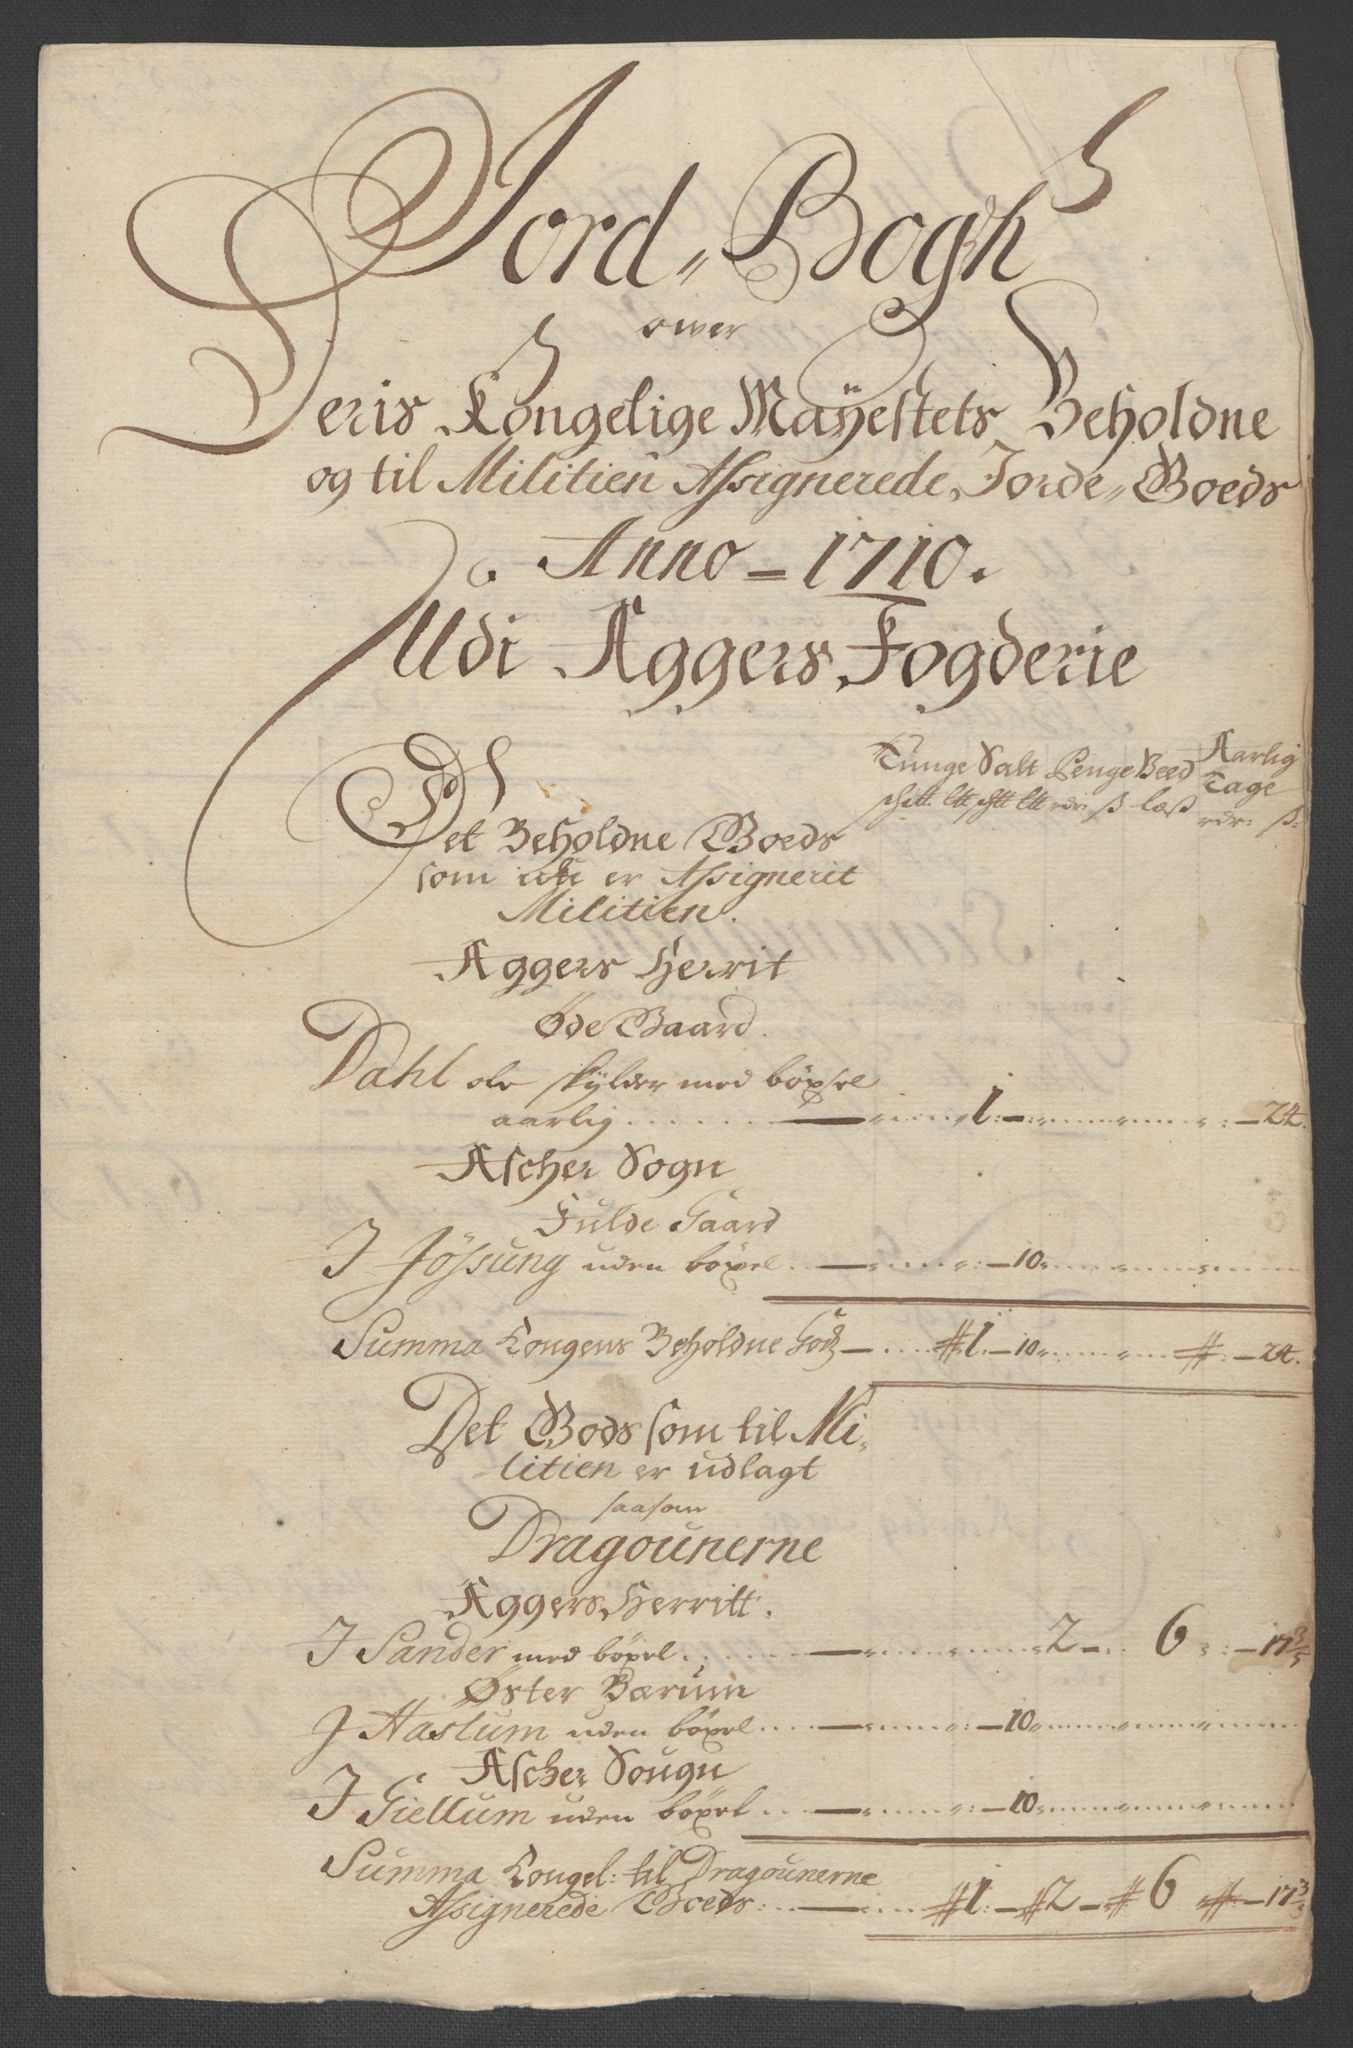 Jord„ Bogh
ower
Deris Kongelige Maÿestets Beholdne
og til Militien Assignerede Jorde„Goeds
Anno – 1710.
Udi Aggers Fogderie
Tunge Salt Penge Aarlig
Tage
rdr: ß:
Det Beholdne Goeds
som icke er Assignerit
Militien.
Aggers Herrit
Øde Gaard.
Dahl skÿlder med böxsel
aarlig 1 – 24.
Ascher Sogn
Fulde Gaard
J Jössung uden böxel – 10
Summa Kongens Beholdne Godz – # 1 – 10 # – 24.
Det Gods som til Mi,
litien er udlagt
saasom
Dragounerne
Aggers Herritt.
J Sander med böxel 2 – 6 – 17 3/5
Öster Bærum
J Haslum uden böxel – 10
Ascher Sougn
J Giellum uden böxel – 10
Summa Kongel: til Dragounerne
Assignerede Goeds – # 1 – # 2 – # 6 # – 17 3/5